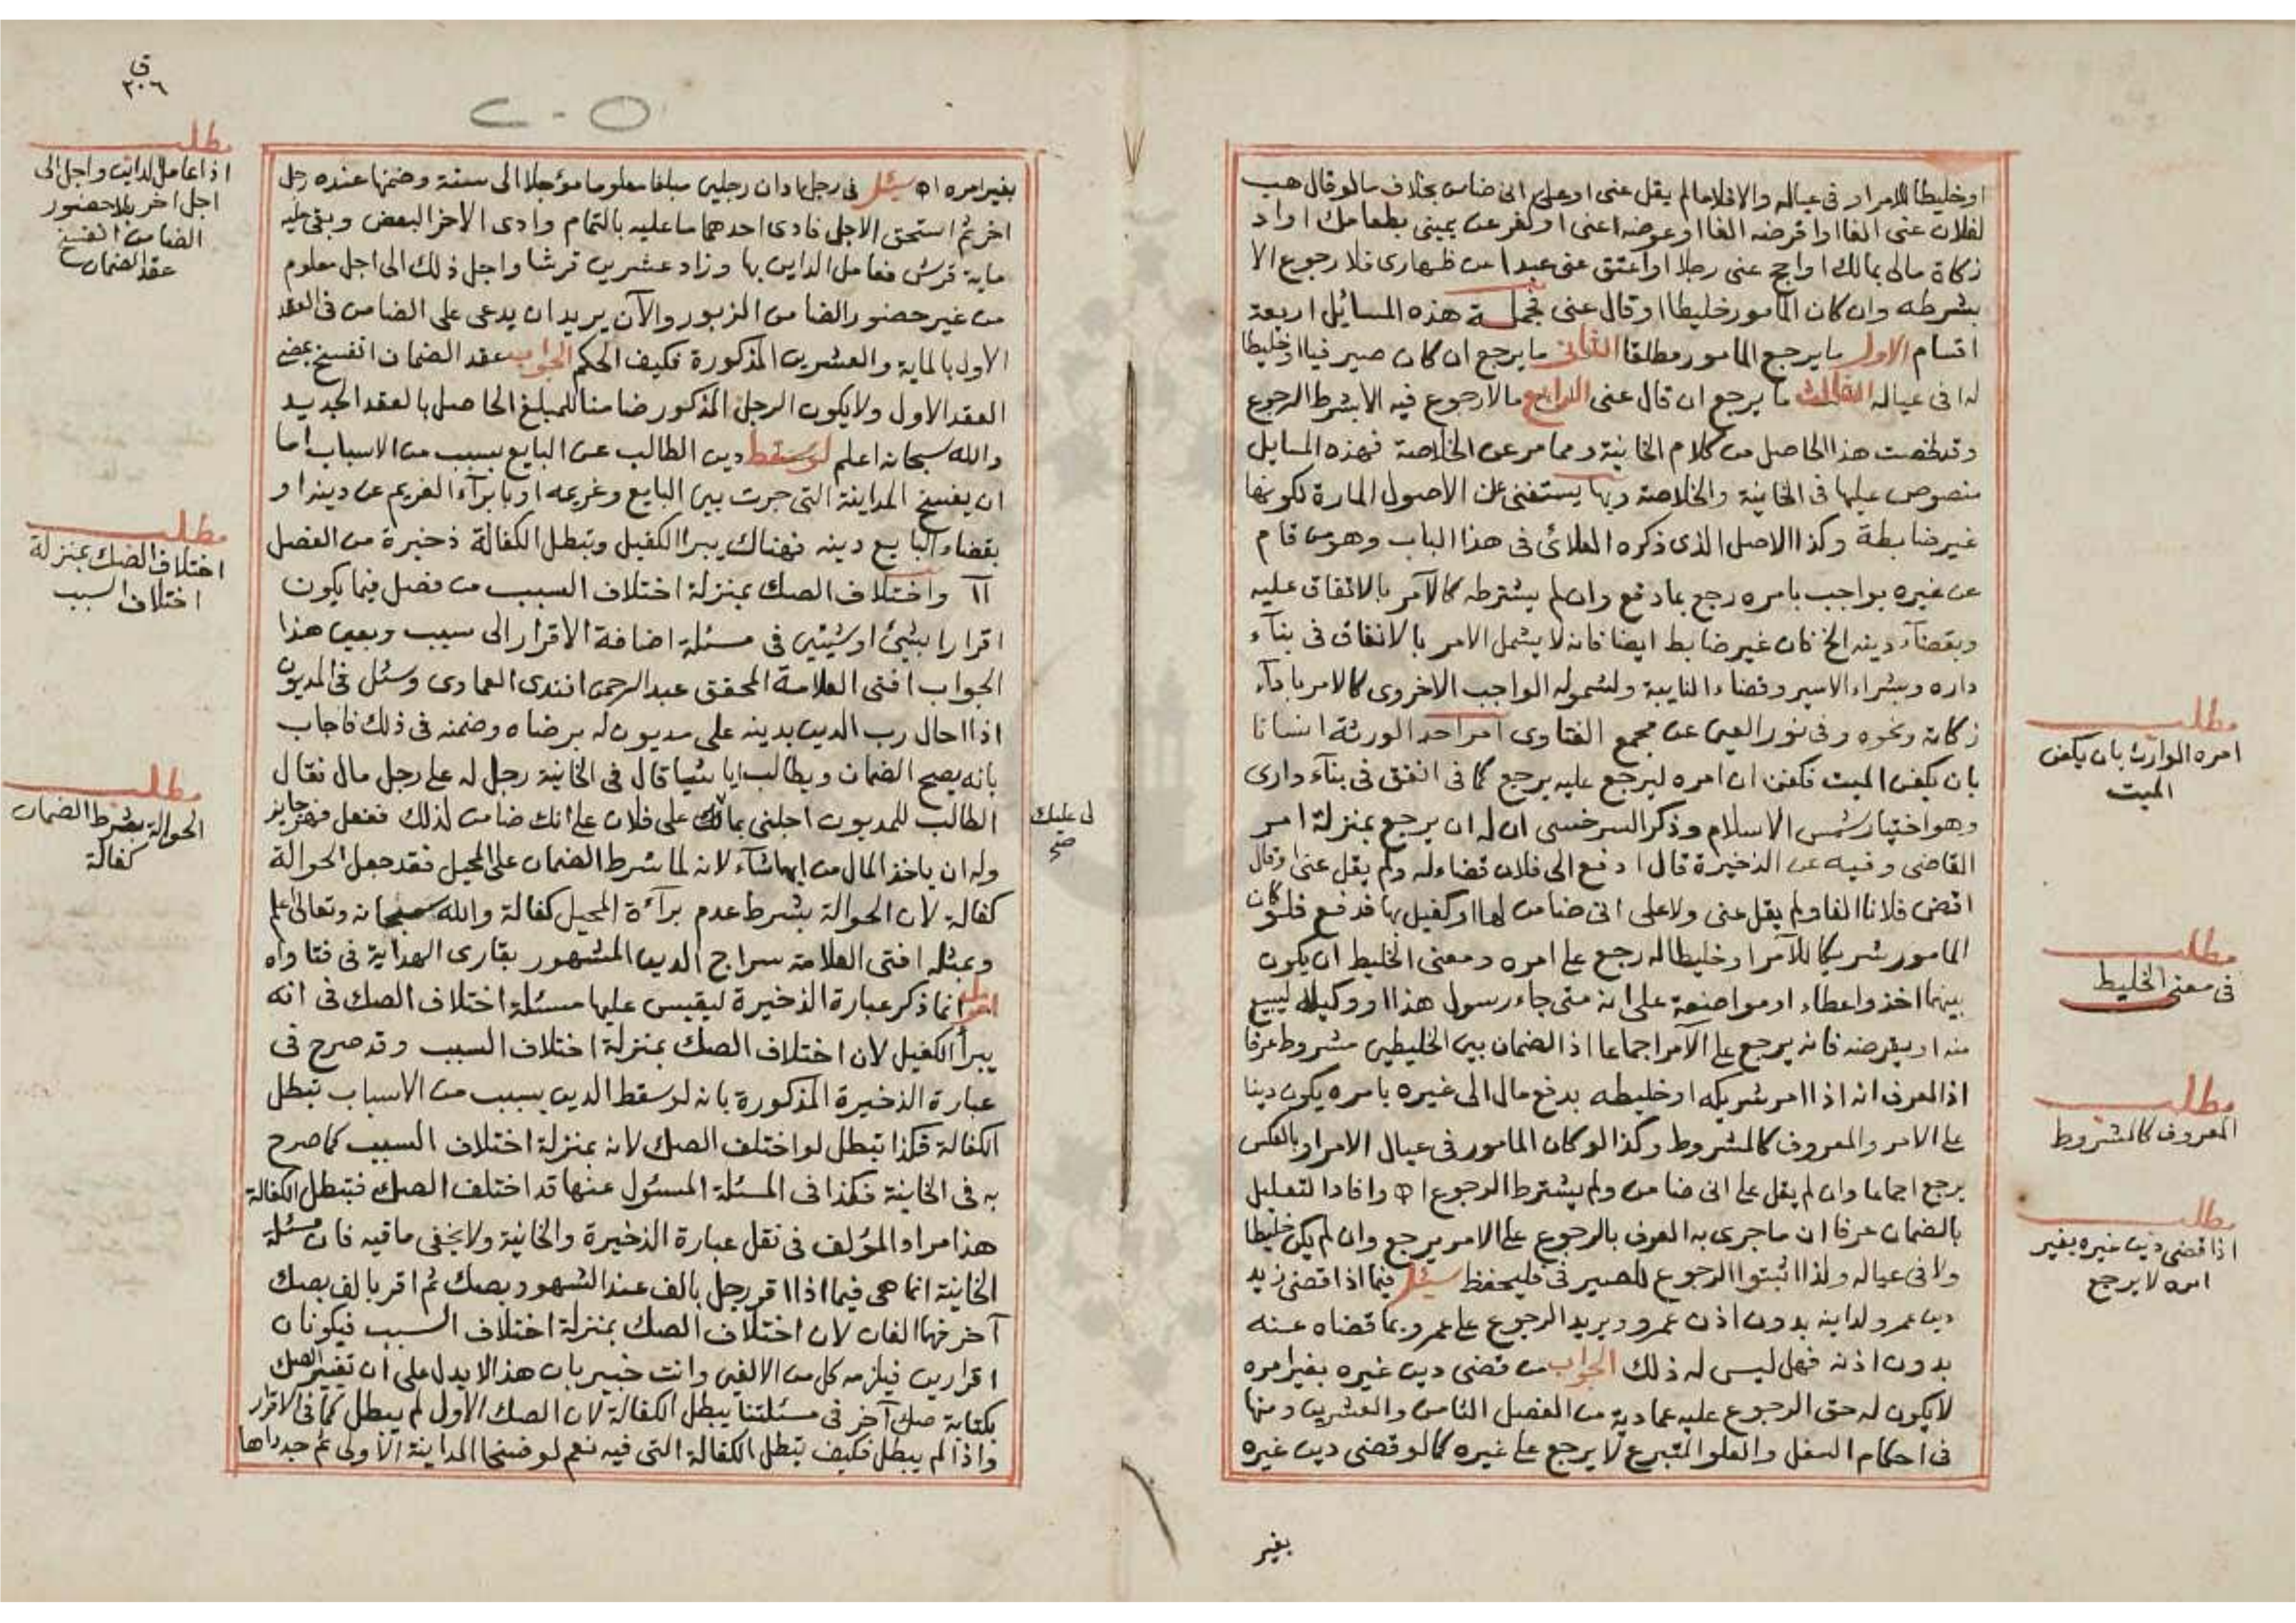 اوخليطا للامر او فى عياله والا فلا مالم يقل عنى او على انى ضامن بخلاف ما لو قال هب
لفلان عنى الفا او اقرضه الفا او عوضه عنى او كفر عن يمينى بطعامك او اد
زكاة مالى بمالك او احج عنى رجلا او اعتق عنى عبدا عن ظهارى فلا رجوع الا
بشرطه وان كان المامور خليطا او قال عنى فجملة هذه المسائل اربعة
اقسام الاول ما يرجع المامور مطلقا الثانى ما يرجع ان كان صيرفيا او خليطا
له او فى عياله الثالث ما يرجع ان قال عنى الرابع ما لا رجوع فيه الا بشرط الرجوع
وقد لخصت هذا الحاصل من كلام الخانية ومما مر عن الخلاصة فهذه المسايل
منصوص عليها فى الخانية والخلاصة وبها يستغنى عن الاصول المارة لكونها
غير ضابطة وكذا الاصل الذى ذكره العلائى فى هذا الباب وهو من قام
عن غيره بواجب بامره رجع بما دفع وان لم يشترطه كالامر بالانفاق عليه
وبقضآء دينه الخ فان غير ضابط ايضا فانه لا يشمل الامر بالانفاق فى بنآء
داره وبشراء الاسير وقضاء النايبة ولشموله الواجب الاخروى كالامر بادآء
زكاته ونحوه وفى نور العين عن مجمع الفتاوى امر احد الورثة انسانا
بان يكفن الميت فكفن ان امره ليرجع عليه يرجع كما فى انفق فى بنآء دارى
وهو اختيار شمس الاسلام وذكر السرخسى ان له ان يرجع بمنزلة امر
القاضى وفيه عن الذخيرة قال ادفع الى فلان قضاء له ولم يقل عنى او قال
اقض فلانا الفا ولم يقل عنى ولا على انى ضامن لها او كفيل بها فدفع فلو كان
المامور شريكا للآمر او خليطا له رجع على امره ومعنى الخليط ان يكون
بينهما اخذ واعطاء او مواضعة على انه متى جاء رسول هذا او وكيله ليبيع
منه او يقرضه فانه يرجع على الآمر اجماعا اذ الضمان بين الخليطين مشروط عرفا
اذ العرف انه اذا امر شريكه او خليطه بدفع مال الى غيره بامره يكون دينا
على الامر والمعروف كالمشروط وكذا لو كان المامور فى عيال الامر او بالعكس
يرجع اجماعا وان لم يقل على انى ضامن ولم يشترط الرجوع اه وافاد التعليل
بالضمان عرفا ان ما جرى به العرف بالرجوع على الامر يرجع وان لم يكن خليطا
ولا فى عياله ولذا اثبتوا الرجوع للصيرفى فليحفظ سئل فيما اذا قضى زيد
دين عمرو لداينه بدون اذن عمرو ويريد الرجوع على عمرو بما قضاه عنه
بدون اذنه فهل ليس له ذلك الجواب من قضى دين غيره بغير امره
لا يكون له حق الرجوع عليه عمادية من الفصل الثامن والعشرين ومنها
فى احكام السفل والعلو المتبرع لا يرجع على غيره كما لو قضى دين غيره
بغير
مطلب
امره الوارث بان يكفن
الميت
مطلب
فى معنى الخليط
مطلب
المعروف كالمشروط
مطلب
اذا قضى دين غيره بغير
امره لا يرجع
بغير امره اه سئل فى رجل ادان رجلين مبلغا معلوما مؤجلا الى سنة وضمنها عنده رجل
اخر ثم استحق الاجل فادى احدهما ما عليه بالتمام وادى الاخر البعض وبقى عليه
ماية قرش فعامل الداين بها وزاد عشرين قرشا واجل ذلك الى اجل معلوم
من غير حضور الضامن الزبور والآن يريد ان يدعى على الضامن فى العقد
الاول بالماية والعشرين المذكورة فكيف الحكم الجواب عقد الضمان انفسخ بمضى
العقد الاول ولا يكون الرجل المذكور ضامنا للمبلغ الحاصل بالعقد الجديد
والله سبحانه اعلم لو سقط دين الطالب عن البايع بسبب من الاسباب اما
ان يفسخ المداينة التى جرت بين البايع وغريمه او بابرآء الغريم عن دينه او
بقضاء البايع دينه فهناك يبرا الكفيل وتبطل الكفالة ذخيرة من الفصل
١١ واختلاف الصك بمنزلة اختلاف السبب من فصل فيما يكون
اقرارا بشئ او شيئين فى مسئلة اضافة الاقرار الى سبب وبعين هذا
الجواب افتى العلامة المحقق عبد الرحمن افندى العمادى وسئل فى المديون
اذا احال رب الدين بدينه على مديون له برضاه وضمنه فى ذلك فاجاب
بانه يصح الضمان ويطالب ايا شيا قال فى الخانية رجل له على رجل مال فقال
الطالب للمديون احلنى بمالك على فلان على انك ضامن لذلك ففعل فهو جايز
وله ان ياخذ المال من ايهما شآء لانه لما شرط الضمان على المحيل فقد جعل الحوالة
كفالة لان الحوالة بشرط عدم برآءة المحيل كفالة والله سبحانه وتعالى اعلم
وبمثله افتى العلامة سراج الدين المشهور بقارى الهداية فى فتاواه
اقول انما ذكر عبارة الذخيرة ليقيس عليها مسئلة اختلاف الصك فى انه
يبرأ الكفيل لان اختلاف الصك بمنزلة اختلاف السبب وقد صرح فى
عبارة الذخيرة المذكورة بانه لو سقط الدين بسبب من الاسباب تبطل
الكفالة فكذا تبطل لو اختلف الصك لانه بمنزلة اختلاف السبب كما صرح
به فى الخانية فكذا فى المسئلة المسئول عنها قد اختلف الصك فتبطل الكفالة
هذا مراد المؤلف فى نقل عبارة الذخيرة والخانية ولا يخفى ما فيه فان مسئلة
الخانية انما هى فيما اذا اقر رجل بالف عند الشهود بصك ثم اقر بالف بصك
آخر فهما الفان لان اختلاف الصك بمنزلة اختلاف السبب فيكونان
اقرارين فيلزمه كل من الالفين وانت خبير بان هذا لا يدل على ان تغيير الصك
بكتابة صك آخر فى مسئلتنا يبطل الكفالة لان الصك الاول لم يبطل كما فى الاقرار
واذا لم يبطل فكيف تبطل الكفالة التى فيه نعم لو فسخا المداينة الاولى ثم جدداها
لى عليك
صح
ق
٣٠٦
مطلب
اذا عامل الداين واجل الى
اجل اخر بلا حضور
الضامن انفسخ
عقد الضمان
مطلب
اختلاف الصك بمنزلة
اختلاف السبب
مطلب
الحوالة بشرط الضمان
كفالة